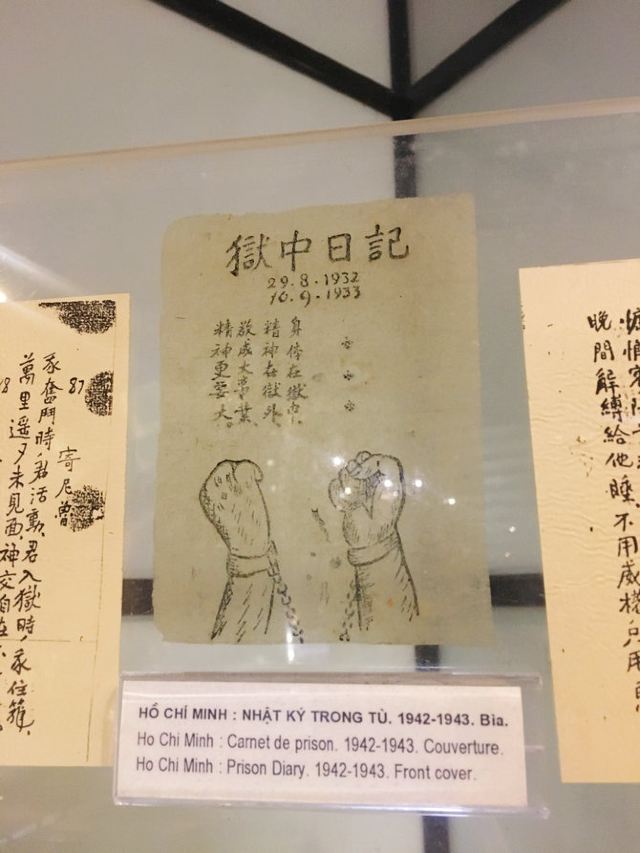 獄中日記
29.8.1932
10.9.1933
身体在獄中、
精神在獄外、
欲成大事業、
精神更要大。
87
寄尼魯
我奮鬥時君活動、君入獄時我住籠、
萬里遥々未見面、神交自在
晚間解縛給他睡、不用威權只用
HỒ CHÍ MINH : NHẬT KÝ TRONG TÙ. 1942-1943. Bìa.
Ho Chi Minh : Carnet de prison. 1942-1943. Couverture.
Ho Chi Minh : Prison Diary. 1942-1943. Front cover.